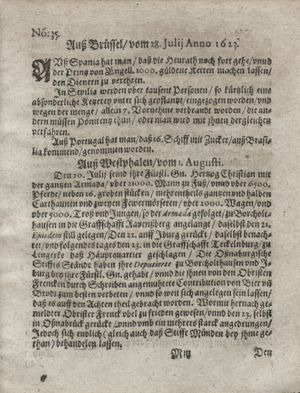 No: 35.
Auß Brüssel/ vom 28. Julij Anno 1623.
Auß Spania hat man/ daß die Heurath noch fort gehe/ vnnd
der Printz von Engell. 1000. güldene Ketten machen lassen/
den Dienern zu verehren.
In Sevilia werden vber tausent Personen/ so kürtzlich eine
absonderliche Ketzerey vnter sich gestifftet/ eingezogen worden/ vnd
wegen der menge/ allein 7. Vornehme verbrandt worden/ die an-
dern müssen Pönitentz thun/ oder man wird mit jhnen dergleichen
verfahren.
Auß Portugal hat man/ daß 16. Schiff mit Zucker/ auß Brasi-
lia kommend/ genommen worden.
Auß Westphalen/ vom 1. Augusti.
Den 20. Julij seind jhre Fürstl. Gn. Hertzog Christian mit
der gantzen Armada/ vber 21000. Mann zu Fuß/ vnnd vber 5600.
Pferde/ neben 16. groben stücken/ mehrentheils gantzen vnd halben
Carthaunen vnd zweyen Fewermörsern/ vber 2000. Wagen/ vnd
vber 5000. Troß vnd Jungen/ so der Armada gefolget/ zu Borchol-
hausen in die Graffschafft Ravensberg angelangt/ daselbst den 21.
still gelegen/ Den 22. auff Jburg gerückt/ daselbst benachte-
tet/ vnd folgendes tages den 23. in die Graffschafft Tecklenburg/ zu
Lengerke daß Häuptquartier geschlagen/ Die Oßnabrugische
Stiffts Stände haben jhre Deputierte zu Borcholthausen vnd Iz-
burg bey jhre Fürstl. Gn. gehabt/ vnnd die jhnen von den Obristen
Frencken durch Schreiben angemuhtete Contribution von Bier vñ
Brodt zum besten verehret/ vnnd so ferrn ansehentlich seyn lassen/
daß es auff den Achten theil gebracht worden. Wormit hernach ge-
meldter Obrister Frenck vbel zu frieden gewesen/ vnnd den 23. selbst
in Oßnabrück gerückt/ vnnd vmb ein mehrers starck angedrungen/
Jedoch sich endlich (gleich auch daß Stifft Münden bey jhme ge-
than) behandelen lassen.
Den